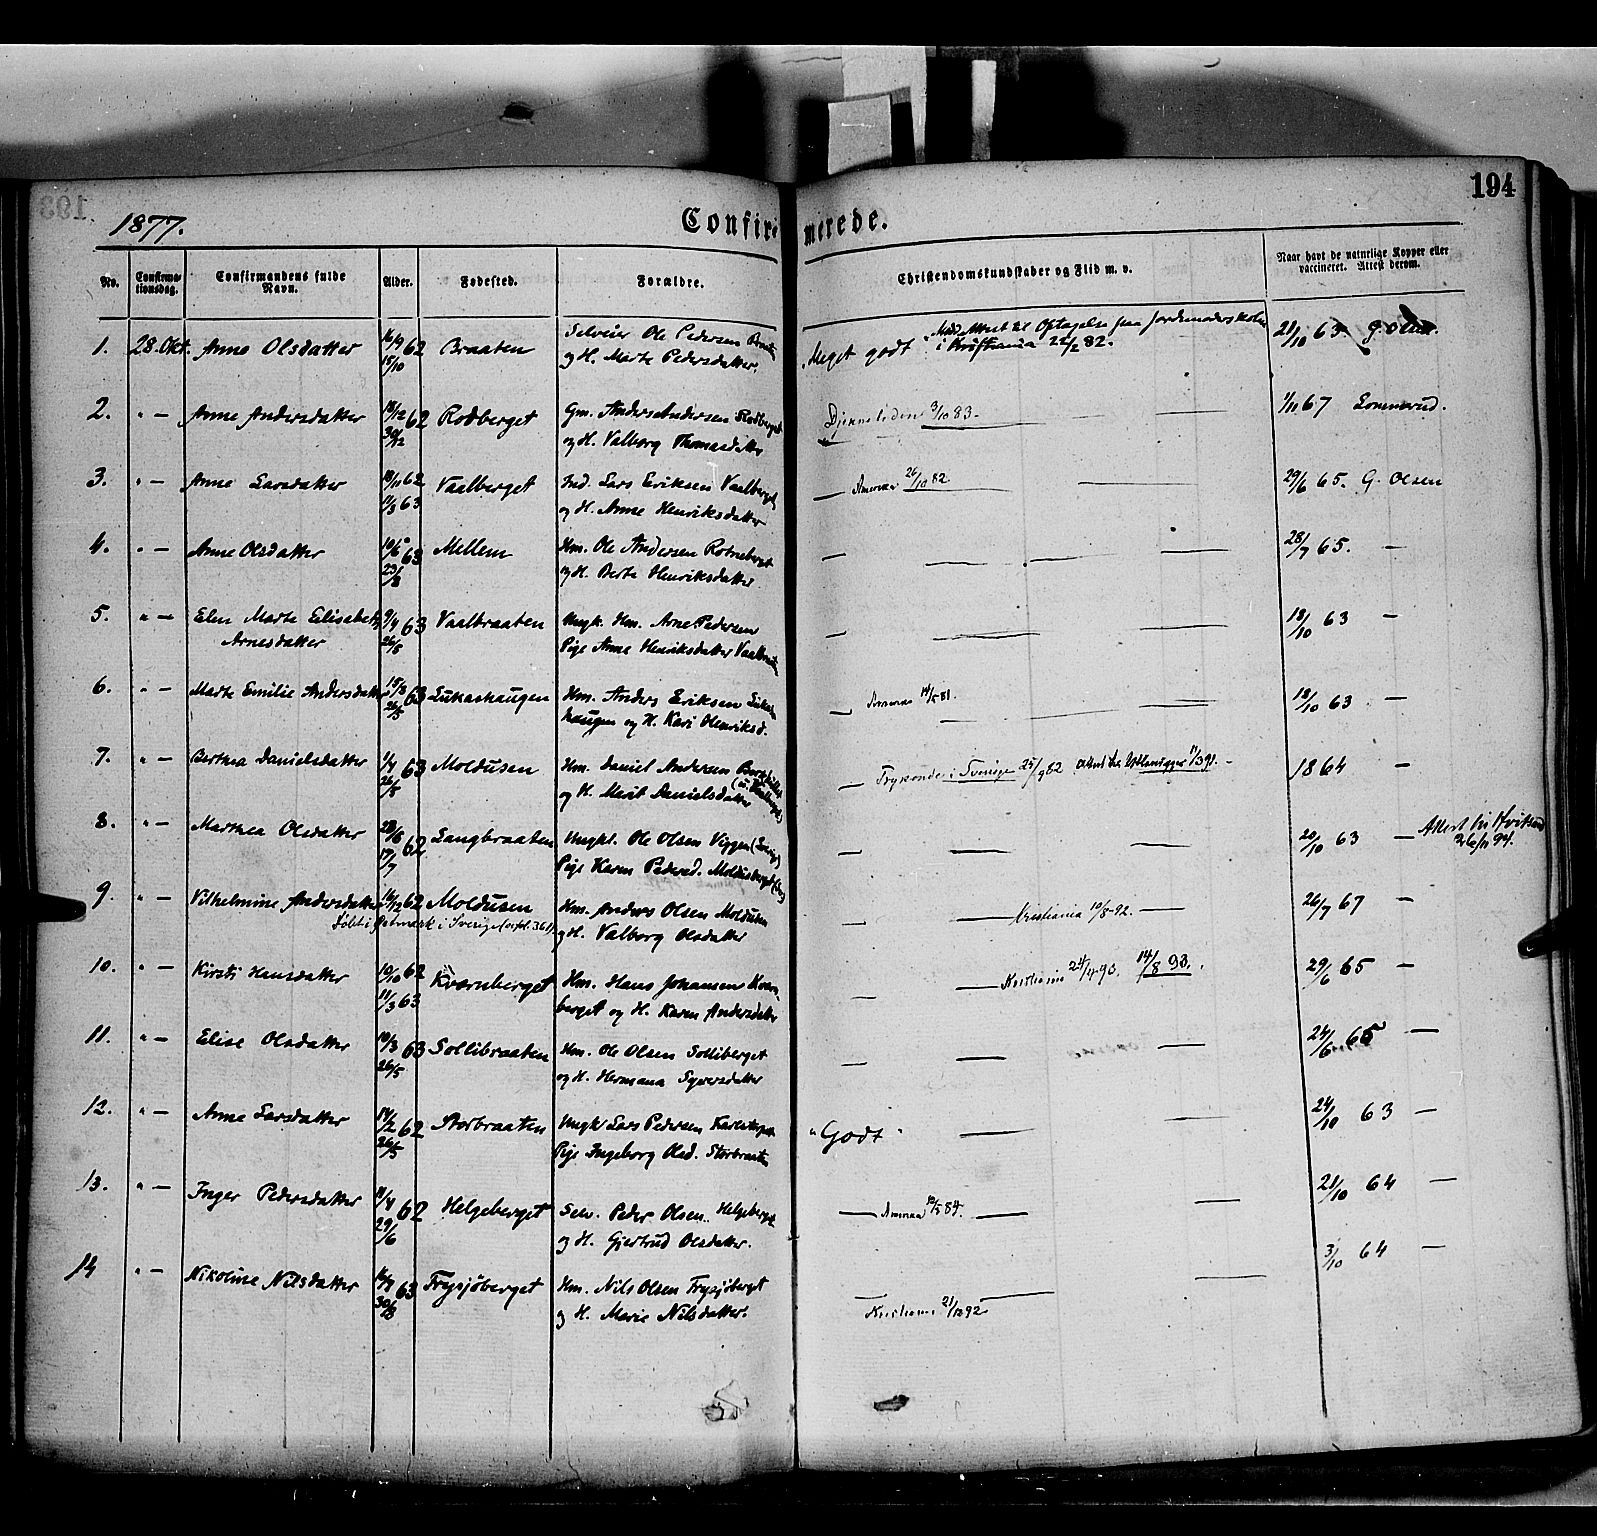 193
194
1877.
Confirmerede.
No.
Confirmationsdag.
Confirmandens fulde Navn.
Alder.
Fødested.
Forældre.
Christendomskundskaber og Flid m. v.
Naar havt de naturlige Kopper eller
vaccineret. Attest derom.
1. 28. Okt. Anne Olsdatter 16/9 62 15/10 Braaten Selveier Ole Pedersen Braaten
og H. Marte Pedersdatter.
Meget godt Meds Attest til Optagelse paa Jordemoderskolen
i Kristiania 22/2 82. 21/10 63 G. Olsen.
2. " — Anne Andersdatter 18/12 62 30/12 Rodberget Gm. Anders Andersen Rodberget
og H. Valborg Thomasdatter
3/10 83. — — 1/11 67 Lommerud.
3. " — Anne Larsdatter 18/11 62 11/3 63 Vaalberget Ind. Lars Eriksen Vaalberget
og H. Anne Henriksdatter
— Amerika 26/10 82 — — 29/6 65. G. Olsen
4. " — Anne Olsdatter 10/6 63 23/8 Mellem Hm. Ole Andersen Rotneberget
og H. Berte Henriksdatter
— — — — 28/7 65. —
5. " — Elen Marte Elisabeth 9/4 63 26/5 Vaalbraaten Ungk. Hm. Arne Pedersen
Arnesdatter Pige Anne Henriksdatter Vaalbraaten
— — — — 18/10 63 —
6. " — Marte Emilie Andersdatter 15/3 63 26/5 Lukashaugen Hm. Anders Eriksen Lukas
haugen og H. Kari Henriksd.
— Amerika 14/5 81. — — — 18/10 63 —
7. " — Berthea Danielsdatter 1/4 63 26/5 Moldusen Hm. Daniel Andersen
og H. Marit Danielsdatter
— Frykende i Sverige 25/9 82 Attest 11/3 91. — 1864 —
8. " — Marthea Olsdatter 28/6 62 17/7 Langbraaten Ungkl. Ole Olsen Viggen (Sverig)
Pige Karen Pedersd. Moldusberget
— — — 20/10 63 — Attest
26/11 94.
9. " — Vilhelmine Andersdatter 16/12 62 Moldusen Hm. Anders Olsen Moldusen
Født i Østmark i Sverige og H. Valborg Olsdatter
— — Kristiania 10/8 92. — 26/7 67 —
10. " — Kirsti Hansdatter 10/10 62 11/3 63 Kvarnberget Hm. Hans Johansen Kvarn-
berget og H. Karen Andersdatter
— — Kristiania 24/4 93. 14/8 93. 29/6 65 —
11. " — Elise Olsdatter 10/3 63 26/5 Sollibraaten Hm. Ole Olsen Solliberget
og H. Hermana Syversdatter
— — — 24/6 65 —
12. " — Anne Larsdatter 14/2 62 26/5 Storbraaten Ungk. Lars Pedersen
Pige Ingeborg Olsd. Storbraaten
"Godt" — — 24/10 63 —
13. " — Inger Pedersdatter 11/4 62 29/6 Helgeberget Selv. Peder Olsen Helgeberget
og H. Gjertrud Olsdatter.
— Amerika 12/5 84. — — 21/10 64 —
14 " — Nikoline Nilsdatter 14/7 63 30/8 Frysjöberget Hm. Nils Olsen Frysjöberget
og H. Marie Nilsdatter.
— — — Kristiania 21/12 92 3/10 64 —